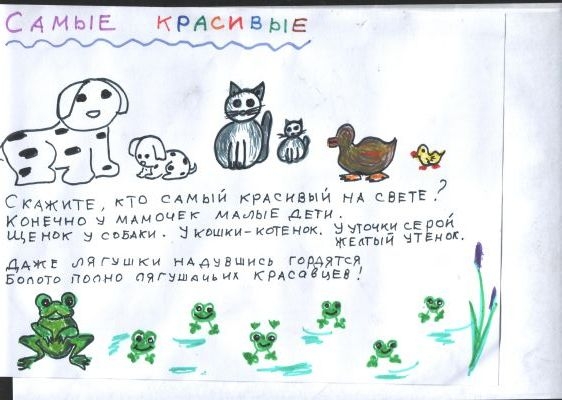 САМЫЕ КРАСИВЫЕ
СКАЖИТЕ, КТО САМЫЙ КРАСИВЫЙ НА СВЕТЕ?
КОНЕЧНО У МАМОЧЕК МАЛЫЕ ДЕТИ.
ЩЕНОК У СОБАКИ. У КОШКИ-КОТЕНОК. У УТОЧКИ СЕРОЙ
ЖЕЛТЫЙ УТЕНОК.
ДАЖЕ ЛЯГУШКИ НАДУВШИСЬ ГОРДЯТСЯ
БОЛОТО ПОЛНО ЛЯГУШАЧЬИХ КРАСАВЦЕВ!